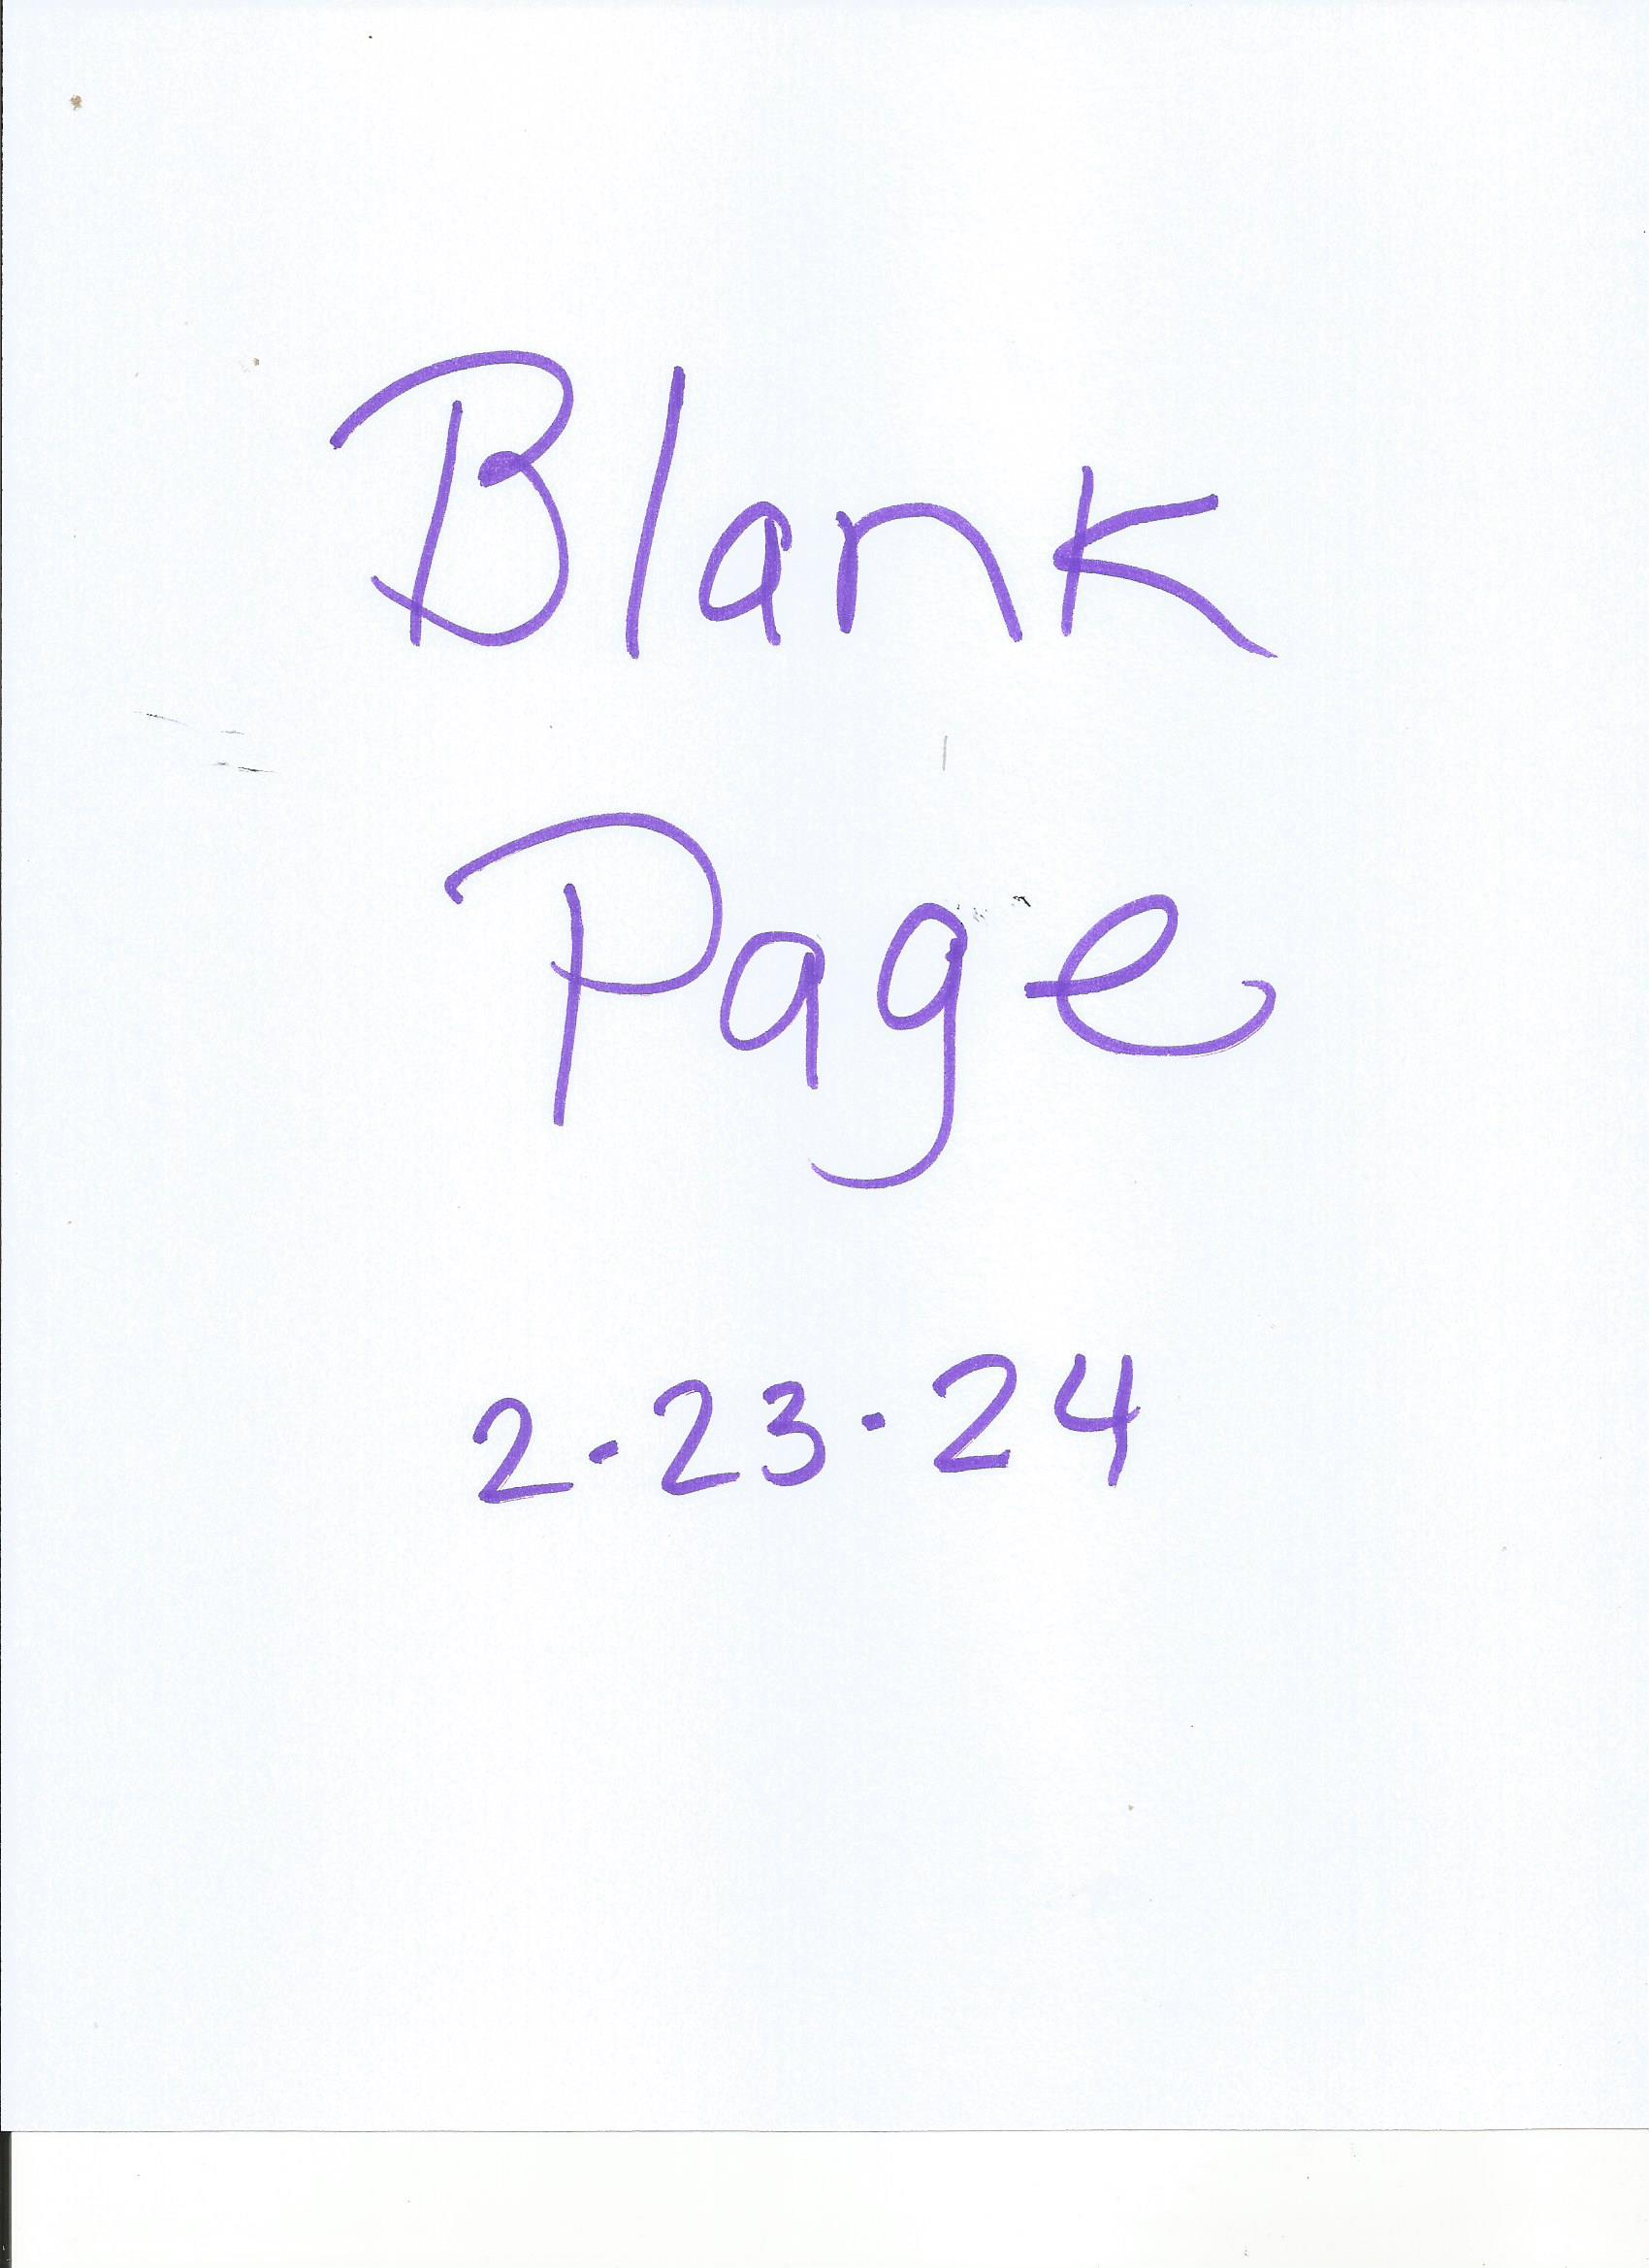 Blank
Page
2-23-24